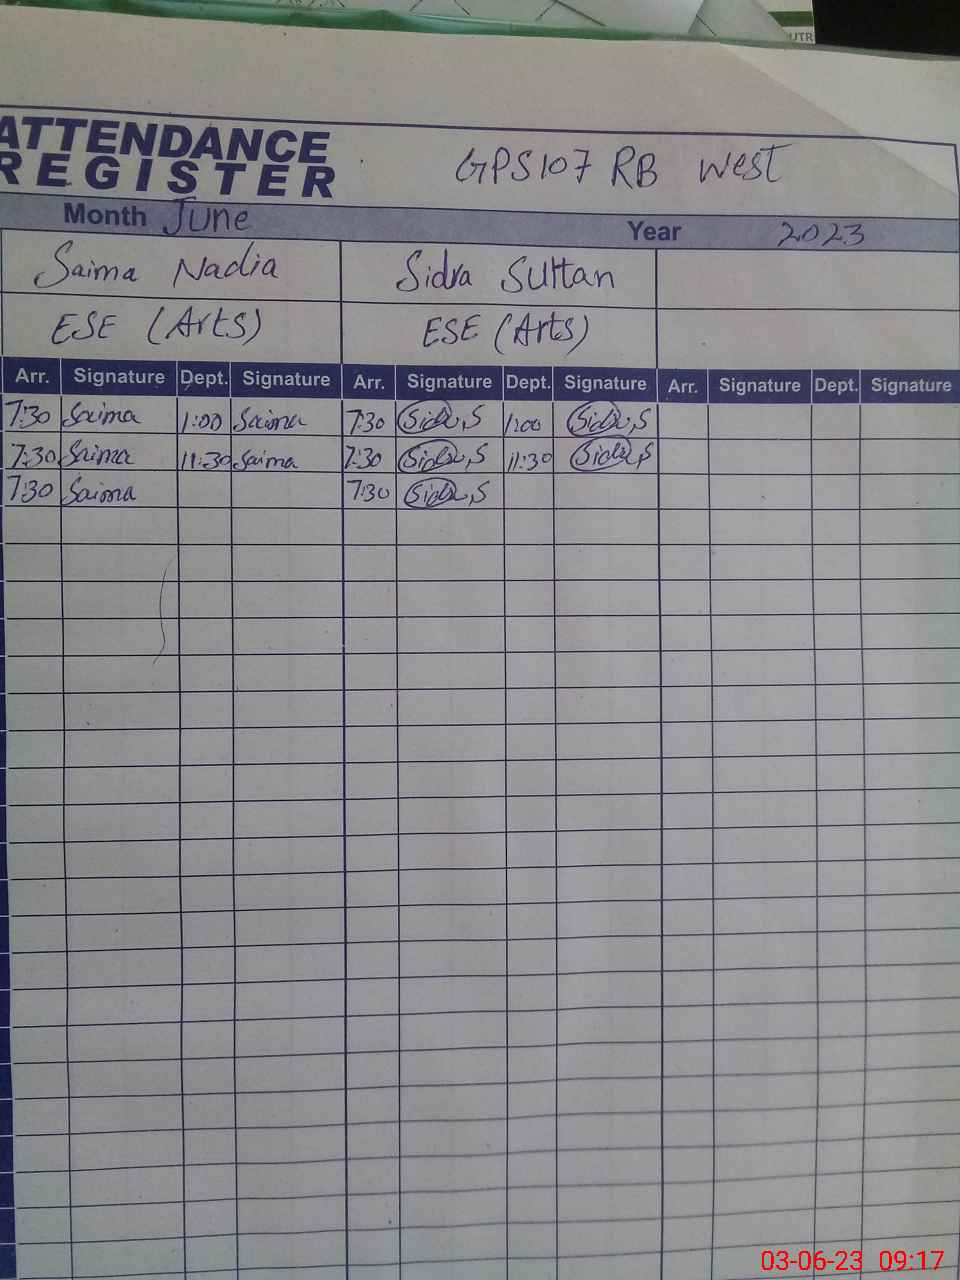 UTR
ATTENDANCE
REGISTER
GPS107 RB West
Month June Year 2023
Saima Nadia Sidra Sultan
ESE (Arts) ESE (Arts)
Arr. Signature Dept. Signature Arr. Signature Dept. Signature Arr. Signature Dept. Signature
7:30 Saima 1:00 Saima 7:30 Sidra,S 1:00 Sidra,S
7:30 Saima 11:30 Saima 7:30 Sidra,S 11:30 Sidra,S
7:30 Saima 7:30 Sidra,S
03-06-23 09:17